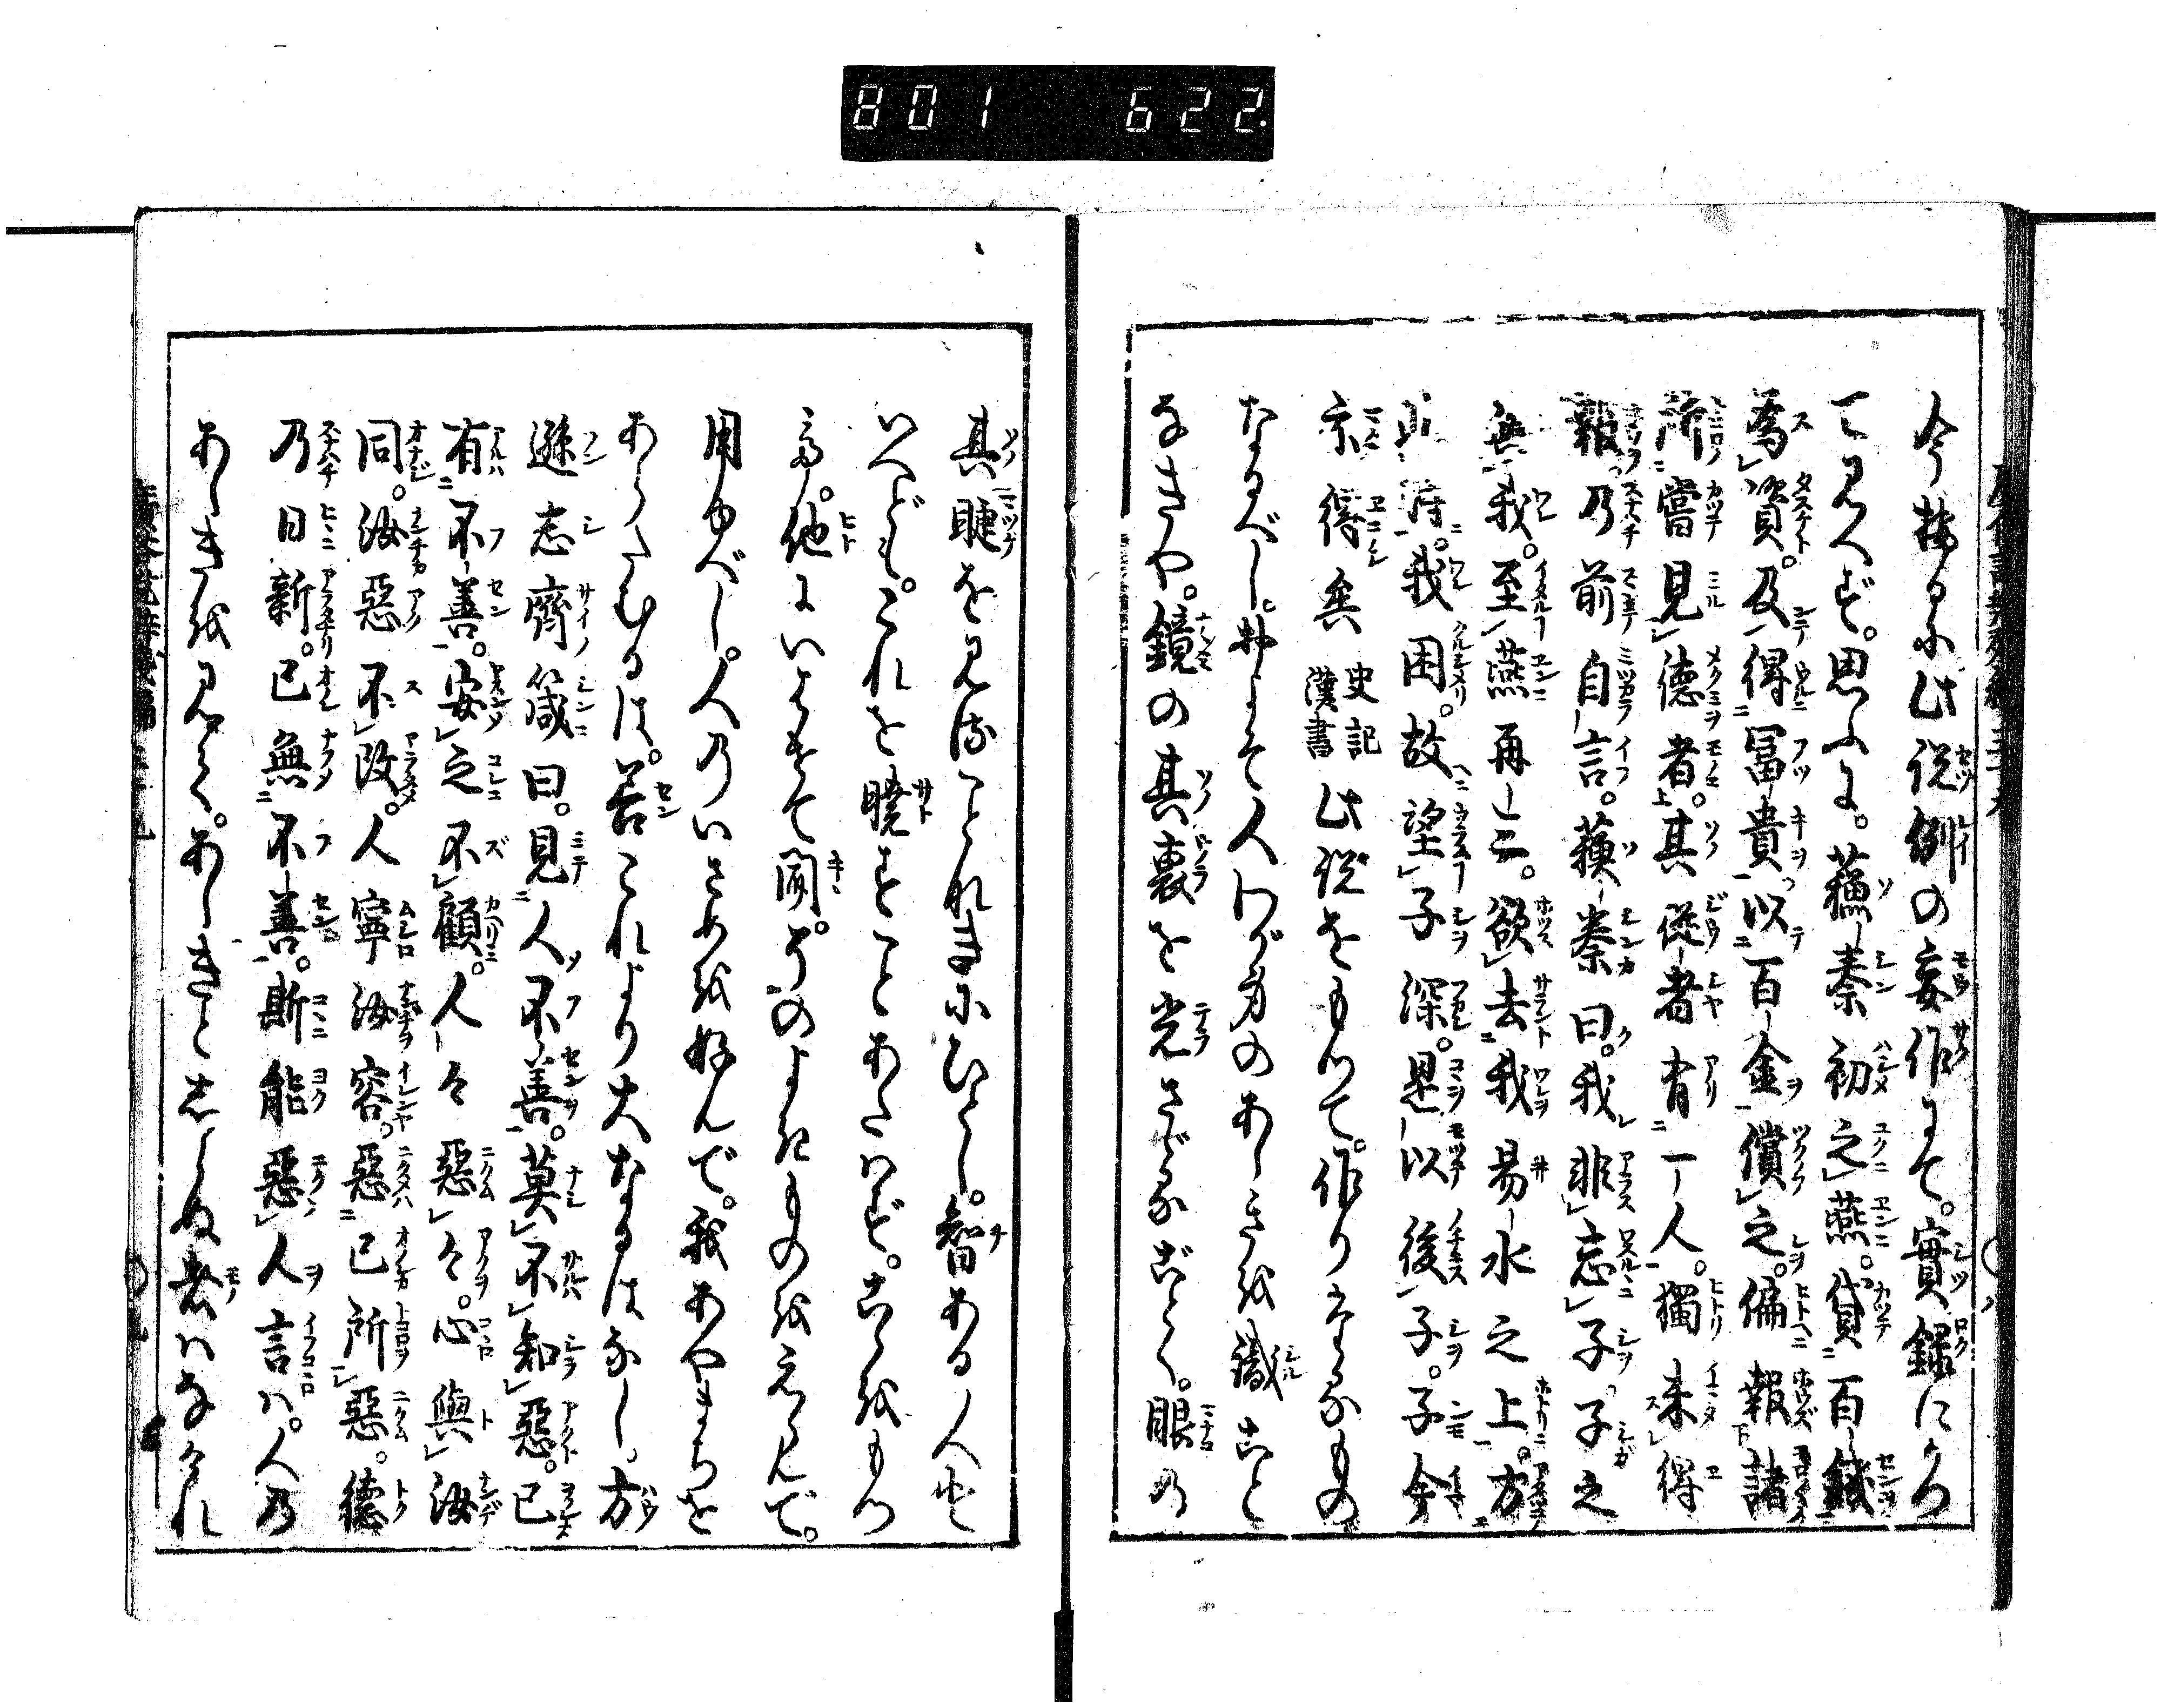 801 622.
今按るに此説例の妄作にて。實録にかつ
て見へず。思ふに。蘓秦初之燕。貸百錢
為資。及得冨貴。以百金償之。偏報諸
所嘗見德者。其從者有一人。獨未得
報。乃前自言。蘓秦曰。我非忘子。子之
與我。至燕再三。欲去我易水之上。方
是時。我困。故望子深。是以後子。子今
亦得矣 史記漢書 此説をもつて。作りかへるもの
なるべし。おほよそ人わが身のあしきを識こと
なきや。鏡の其裏を光さゞるごとく。眼の
其睫を見ることなきにひとし。智ある人と
いへども。これを曉すことあたはず。こゝをもつ
て。他にいはせて聞。そのよきものをえらんで。
用ゆべし。人のいさめを好んで。我あやまちを
あらたむるは。善これより大なるはなし。方
遜志齊箴曰。見人不善。莫不知惡。已
有不善。安之不顧。人々惡々。心與汝
同。汝惡不改。人寧汝容。惡已所惡。德
乃日新。已無不善。斯能惡人言ハ。人の
あしきを見て。あしきとしらぬ者ハなけれ